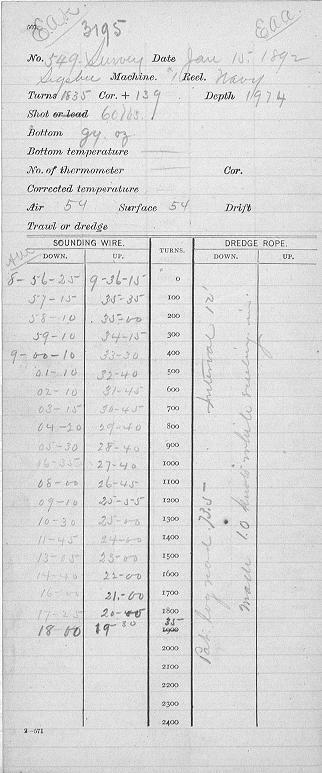 E.A.K. 3195 E.a.a.
No. 549. Survey Date Jan 15, 1892
Sigsbee Machine. #1 Reel. Navy
Turns 1835 Cor. + 139 Depth 1974
Shot or lead 60 lbs.
Bottom gy. oz
Bottom temperature
No. of thermometer Cor.
Corrected temperature
Air 54 Surface 54 Drift
Trawl or dredge
SOUNDING WIRE. TURNS. DREDGE ROPE.
DOWN. UP. DOWN. UP.
8-56-25 9-36-15 0
57-15 35-35 100
58-10 35-00 200
59-10 34-15 300
9-00-10 33-30 400
01-10 32-40 500
02-10 31-45 600
03-15 30-45 700
04-20 29-40 800
05-30 28-40 900
06-35 27-40 1000
08-00 26-45 1100
09-10 25-55 1200
10-30 25-00 1300
11-45 24-00 1400
13-05 23-00 1500
14-40 22-00 1600
16-00 21-00 1700
17-25 20-00 1800
18-00 19 30 35 1900
2000
2100
2200
2300
2400
Pat. log read 73.5 Interval 12'
Made 1.0 knots while reeling in.
2-571